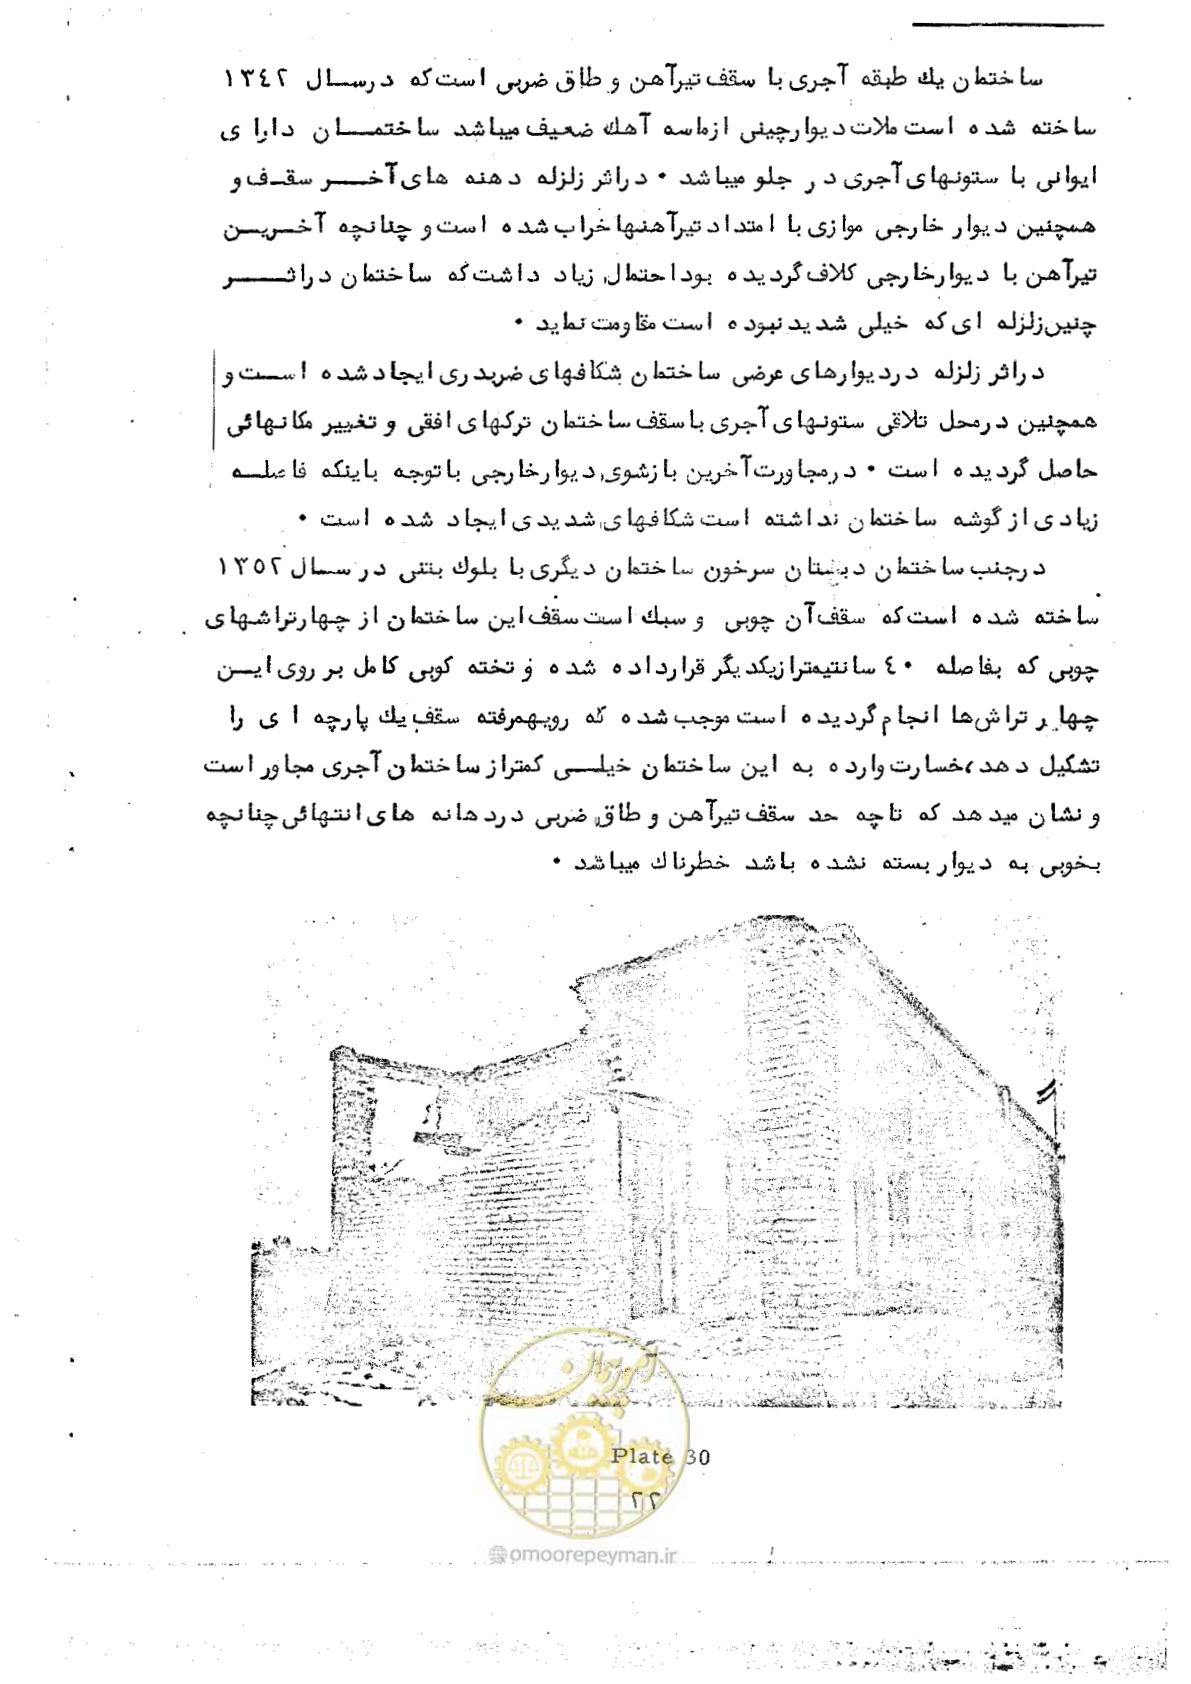 ساختمان یك طبقه آجری با سقف تیرآهن و طاق ضربی است که درسال ۱۳٤۲
ساخته شده است ملات دیوارچینی ازماسه آهك ضعیف میباشد ساختمان دارای
ایوانی با ستونهای آجری در جلو میباشد ۰ دراثر زلزله دهنه های آخر سقف و
همچنین دیوار خارجی موازی با امتداد تیرآهنها خراب شده است و چنانچه آخرین
تیرآهن با دیوارخارجی کلاف گردیده بود احتمال زیاد داشت که ساختمان دراثر
چنین زلزله ای که خیلی شدید نبوده است مقاومت نماید ۰
دراثر زلزله دردیوارهای عرضی ساختمان شکافهای ضربدری ایجاد شده است و
همچنین درمحل تلاقی ستونهای آجری با سقف ساختمان ترکهای افقی و تغییر مکانهائی
حاصل گردیده است ۰ درمجاورت آخرین بازشوی دیوارخارجی با توجه باینکه فاصله
زیادی از گوشه ساختمان نداشته است شکافهای شدیدی ایجاد شده است ۰
درجنب ساختمان دبستان سرخون ساختمان دیگری با بلوك بتنی در سال ۱۳٥۲
ساخته شده است که سقف آن چوبی و سبك است سقف این ساختمان از چهارتراشهای
چوبی که بفاصله ٤۰ سانتیمتر ازیکدیگر قرارداده شده و تخته کوبی کامل بر روی این
چهار تراش‌ها انجام گردیده است موجب شده که رویهمرفته سقف یك پارچه ای را
تشکیل دهد، خسارت وارده به این ساختمان خیلی کمتر از ساختمان آجری مجاور است
و نشان میدهد که تاچه حد سقف تیرآهن و طاق ضربی دردهانه های انتهائی چنانچه
بخوبی به دیوار بسته نشده باشد خطرناك میباشد ۰
امور پیمان
Plate 30
۲۲
@omoorepeyman.ir